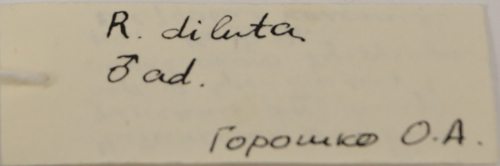 R. diluta
♂ ad.
Горошко О.А.